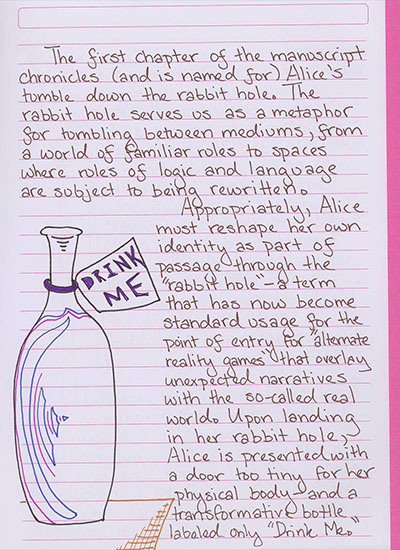 The first chapter of the manuscript
chronicles (and is named for) Alice's
tumble down the rabbit hole. The
rabbit hole serves us as a metaphor
for tumbling between mediums, from
a world of familiar rules to spaces
where rules of logic and language
are subject to being rewritten.
Appropriately, Alice
must reshape her own
identity as part of
passage through the
"rabbit hole"-a term
that has now become
standard usage for the
point of entry for "alternate
reality games" that overlay
unexpected narratives
with the so-called real
world. Upon landing
in her rabbit hole,
Alice is presented with
a door too tiny for her
physical body-and a
transformative bottle
labeled only "Drink Me."
DRINK
ME